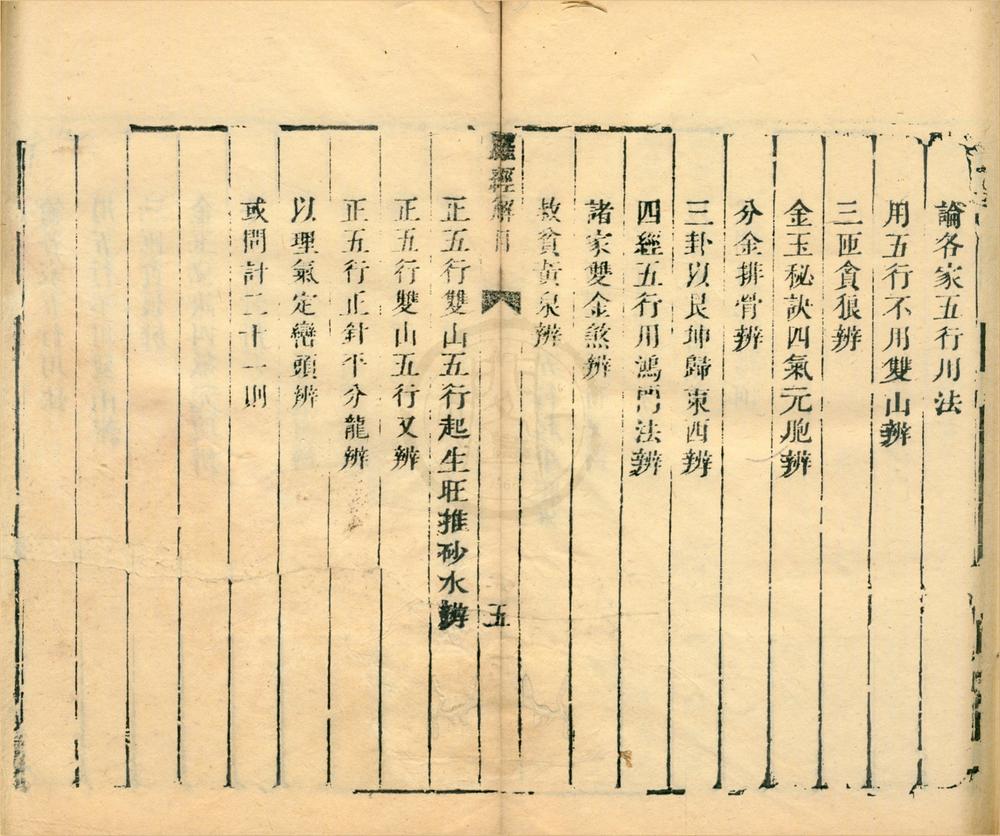 論各家五行用法
用五行不用雙山辨
三匝貪狼辨
金玉秘訣四氣元胞辨
分金排骨辨
三卦以艮坤歸東西辨
四經五行用鴻門法辨
諸家雙金煞辨
救貧黃泉辨
羅經解 五
正五行雙山五行起生旺推砂水辨
正五行雙山五行又辨
正五行正針平分龍辨
以理氣定巒頭辨
或問計二十一則